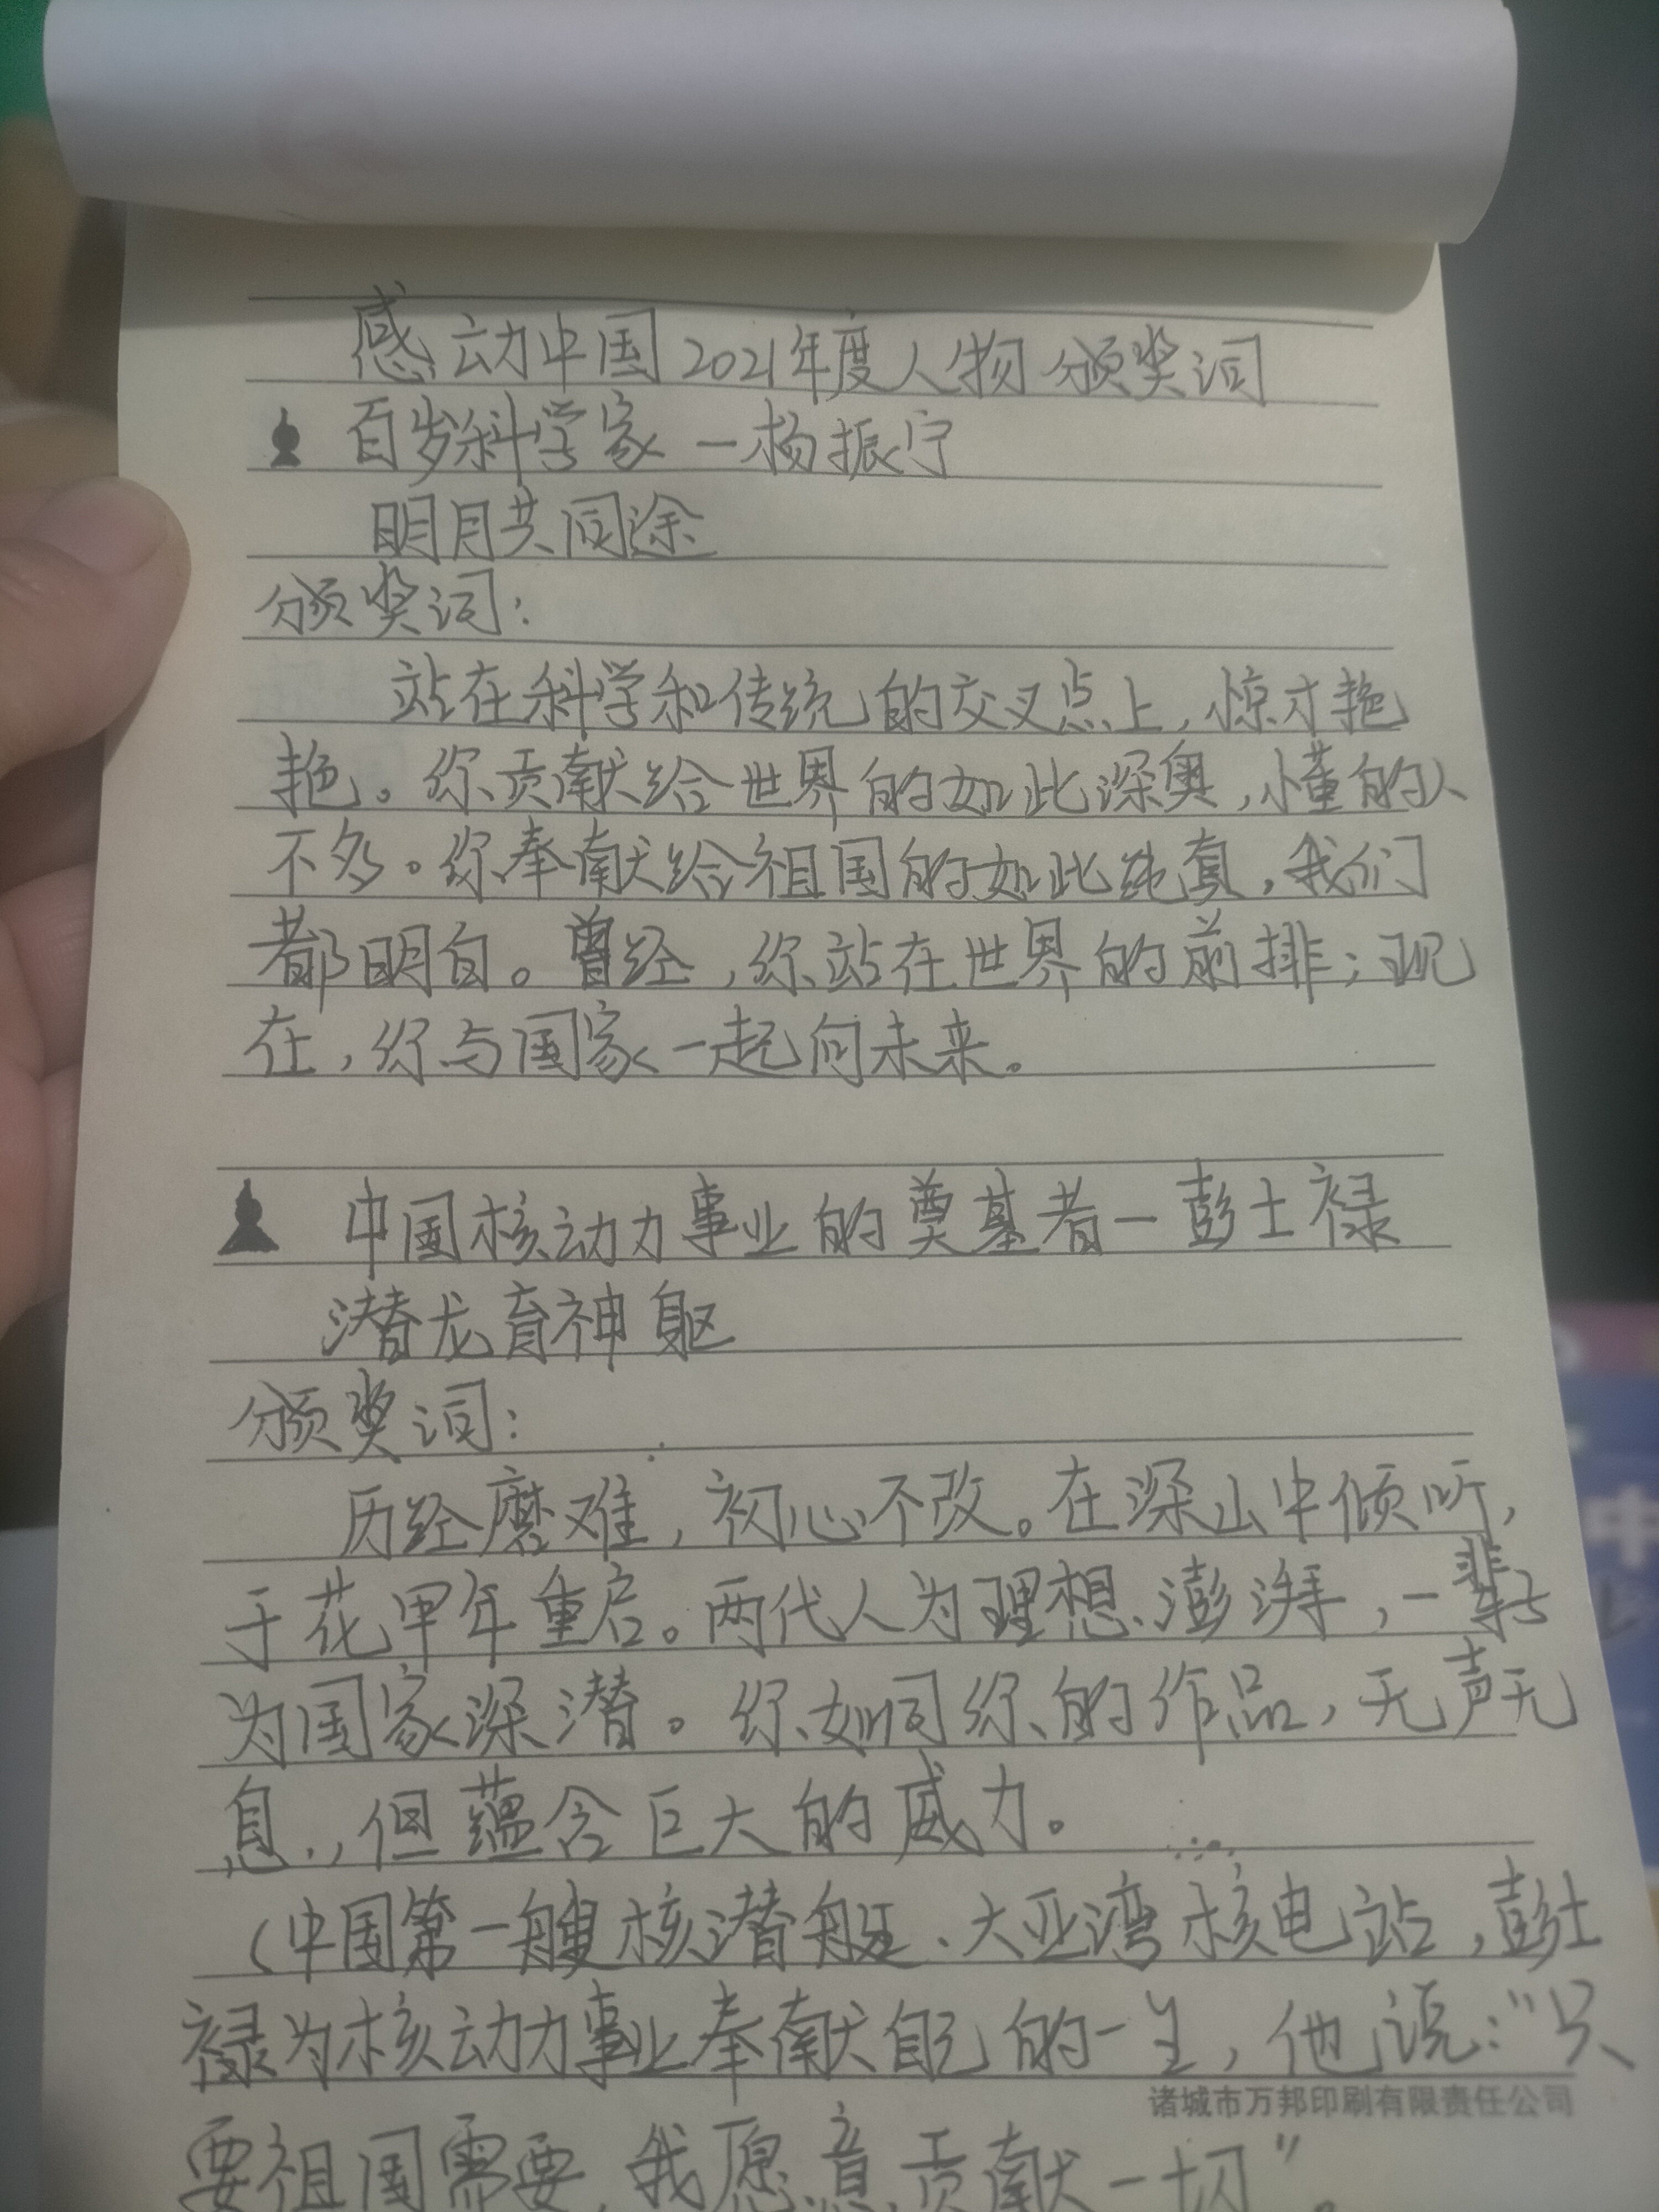 感动中国2021年度人物颁奖词
百岁科学家—杨振宁
明月共同途
颁奖词：
站在科学和传统的交叉点上，惊才艳
艳。你贡献给世界的如此深奥，懂的人
不多。你奉献给祖国的如此纯真，我们
都明白。曾经，你站在世界的前排；现
在，你与国家一起向未来。
中国核动力事业的奠基者—彭士禄
潜龙育神躯
颁奖词：
历经磨难，初心不改。在深山中倾听，
于花甲年重启。两代人为理想澎湃，一辈子
为国家深潜。你如同你的作品，无声无
息，但蕴含巨大的威力。
（中国第一艘核潜艇、大亚湾核电站，彭士
禄为核动力事业奉献自己的一生，他说：“只
诸城市万邦印刷有限责任公司
要祖国需要，我愿意贡献一切”。